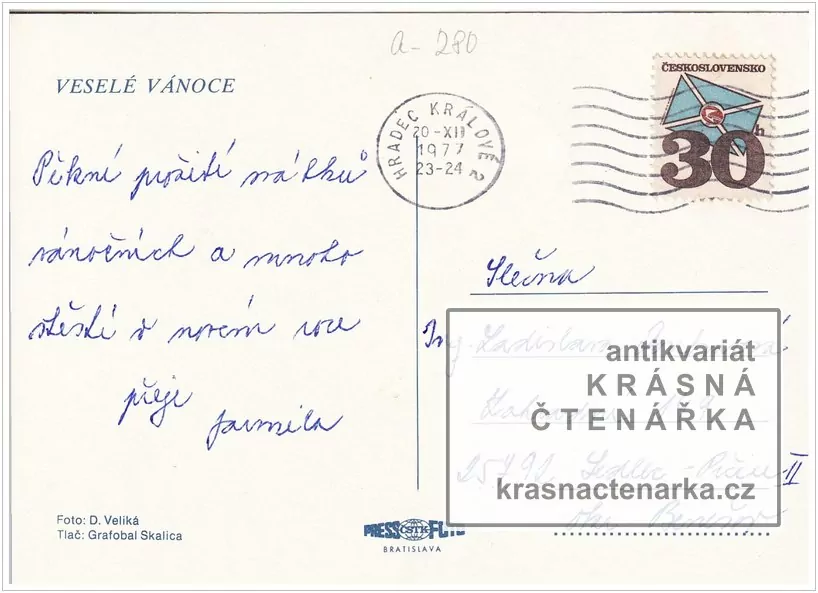 a-280
VESELÉ VÁNOCE
HRADEC KRÁLOVÉ 2
20-XII
1977
23-24
ČESKOSLOVENSKO
h
30
Pěkné prožití svátků
vánočních a mnoho
štěstí v novém roce
přeje
Jarmila
Slečna
Ing. Ladislava
antikvariát
KRÁSNÁ
ČTENÁŘKA
257 91 Sedlec - Prčice II
krasnactenarka.cz
okr. Benešov
Foto: D. Veliká
Tlač: Grafobal Skalica
PRESSFOTO
ČSTK
BRATISLAVA